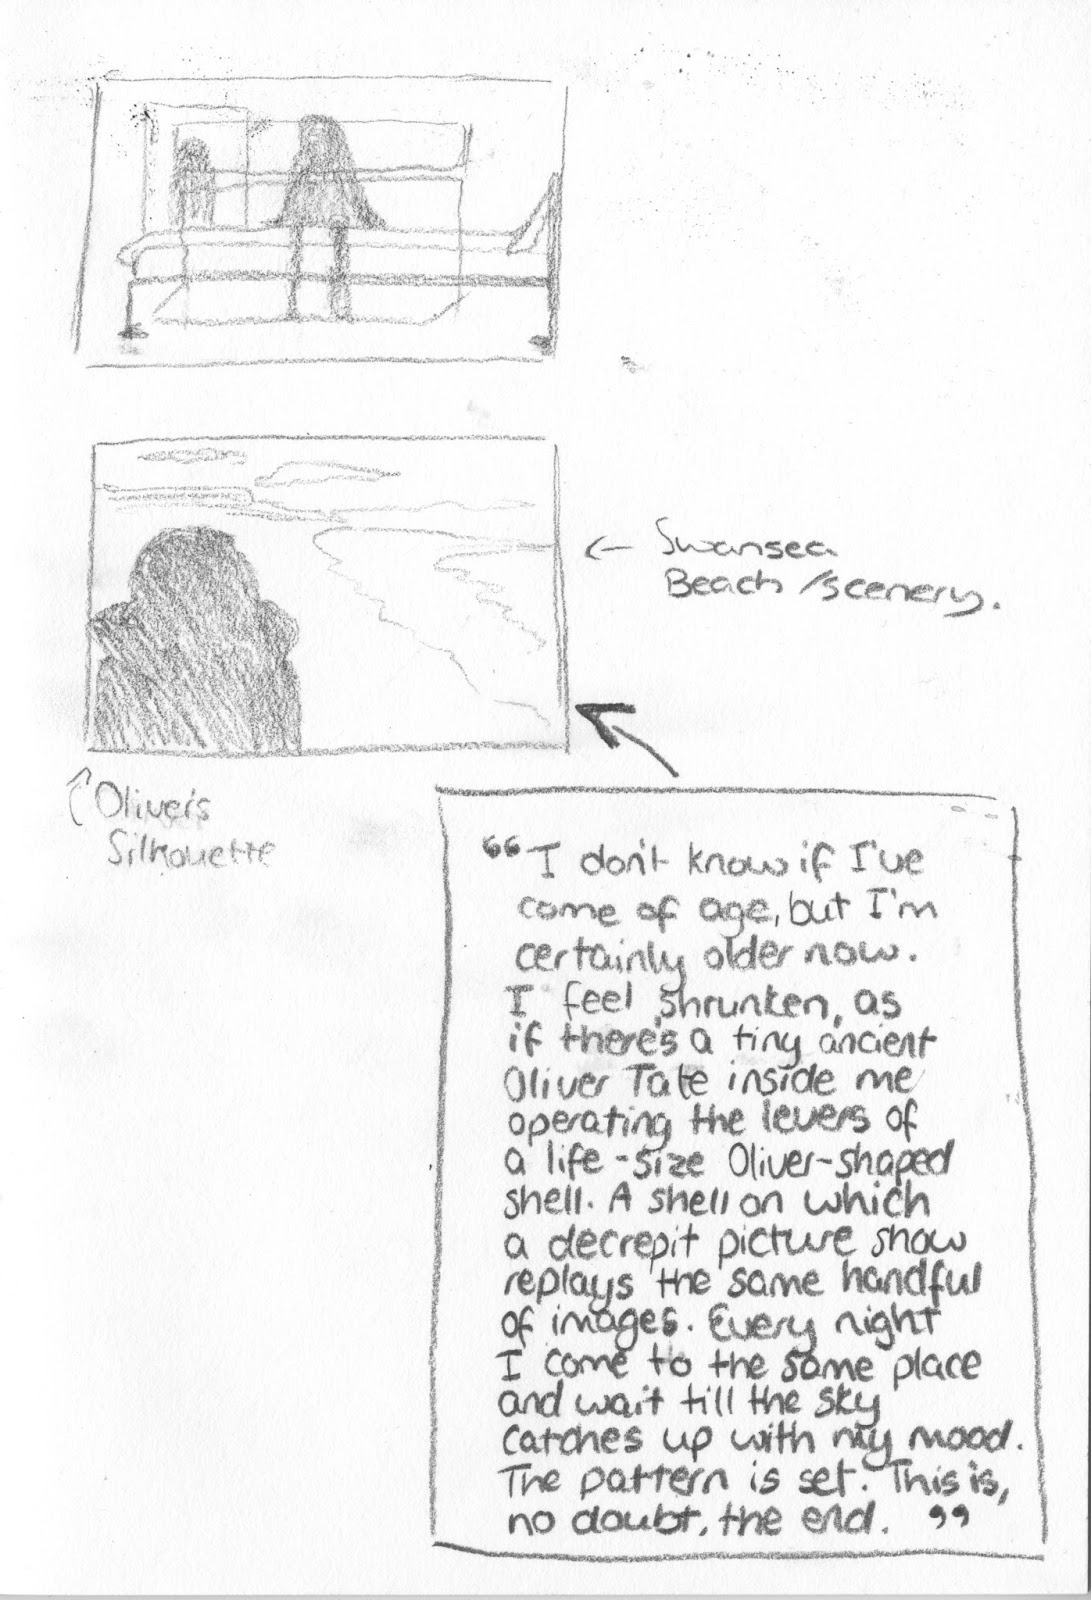 ← Swansea
Beach/scenery.
Oliver's
Silhouette
"I don't know if I've
come of age, but I'm
certainly older now.
I feel shrunken, as
if there's a tiny ancient
Oliver Tate inside me
operating the levers of
a life-size Oliver-shaped
shell. A shell on which
a decrepit picture show
replays the same handful
of images. Every night
I come to the same place
and wait till the sky
catches up with my mood.
The pattern is set. This is,
no doubt, the end. "